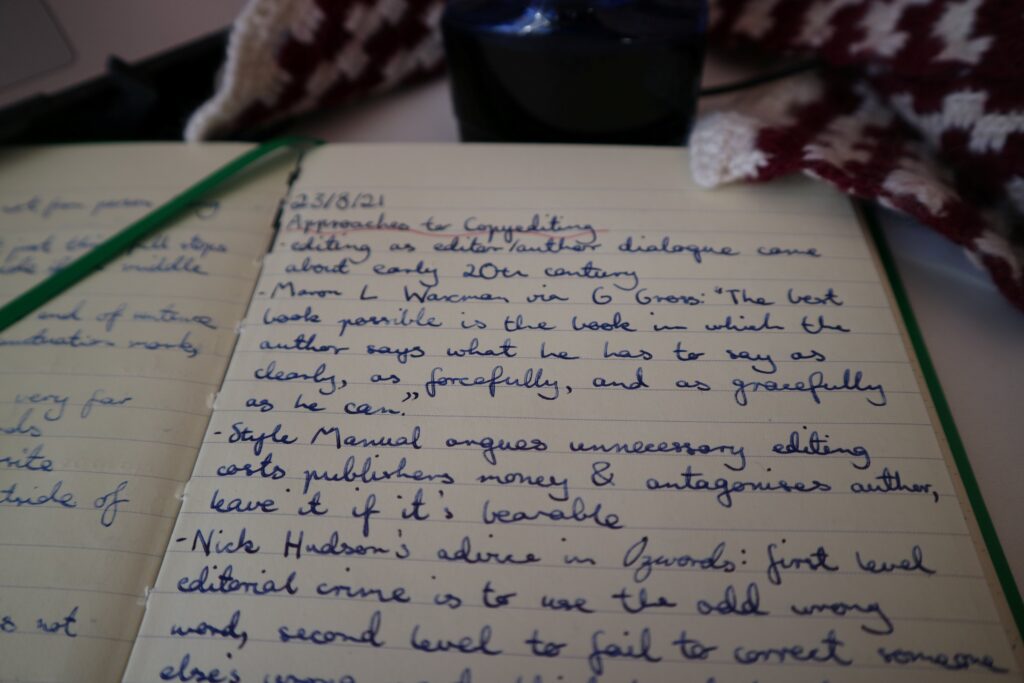 not from person
full stops
middle
end of sentence
marks,
very far
site
of
not
23/8/21
Approaches to Copyediting
- editing as editor/author dialogue came
about early 20th century
- Maron L Waxman via G Gross: "The best
book possible is the book in which the
author says what he has to say as
clearly, as forcefully, and as gracefully
as he can."
- Style Manual argues unnecessary editing
costs publishers money & antagonises author,
leave it if it's bearable
- Nick Hudson's advice in Ozwords: first level
editorial crime is to use the odd wrong
word, second level to fail to correct someone
else's wrong